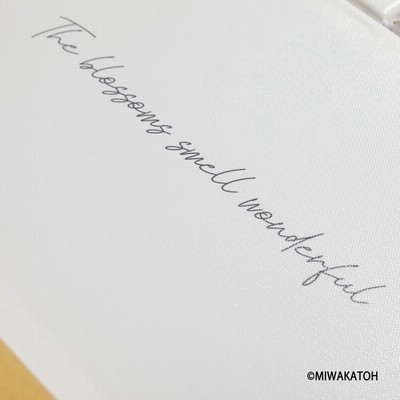 The blossoms smell wonderful
©MIWAKATOH